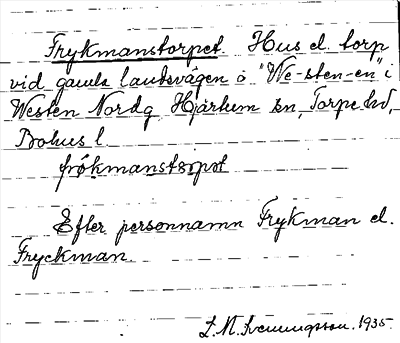 Frykmanstorpet. Hus el. torp
vid gamla landsvägen å "We-sten-en" i
Westen Nordg, Hjärtum sn, Torpe hd,
Bohus l.
frø̀kmanstørpət
Efter personnamn Frykman el.
Fryckman.
1935.